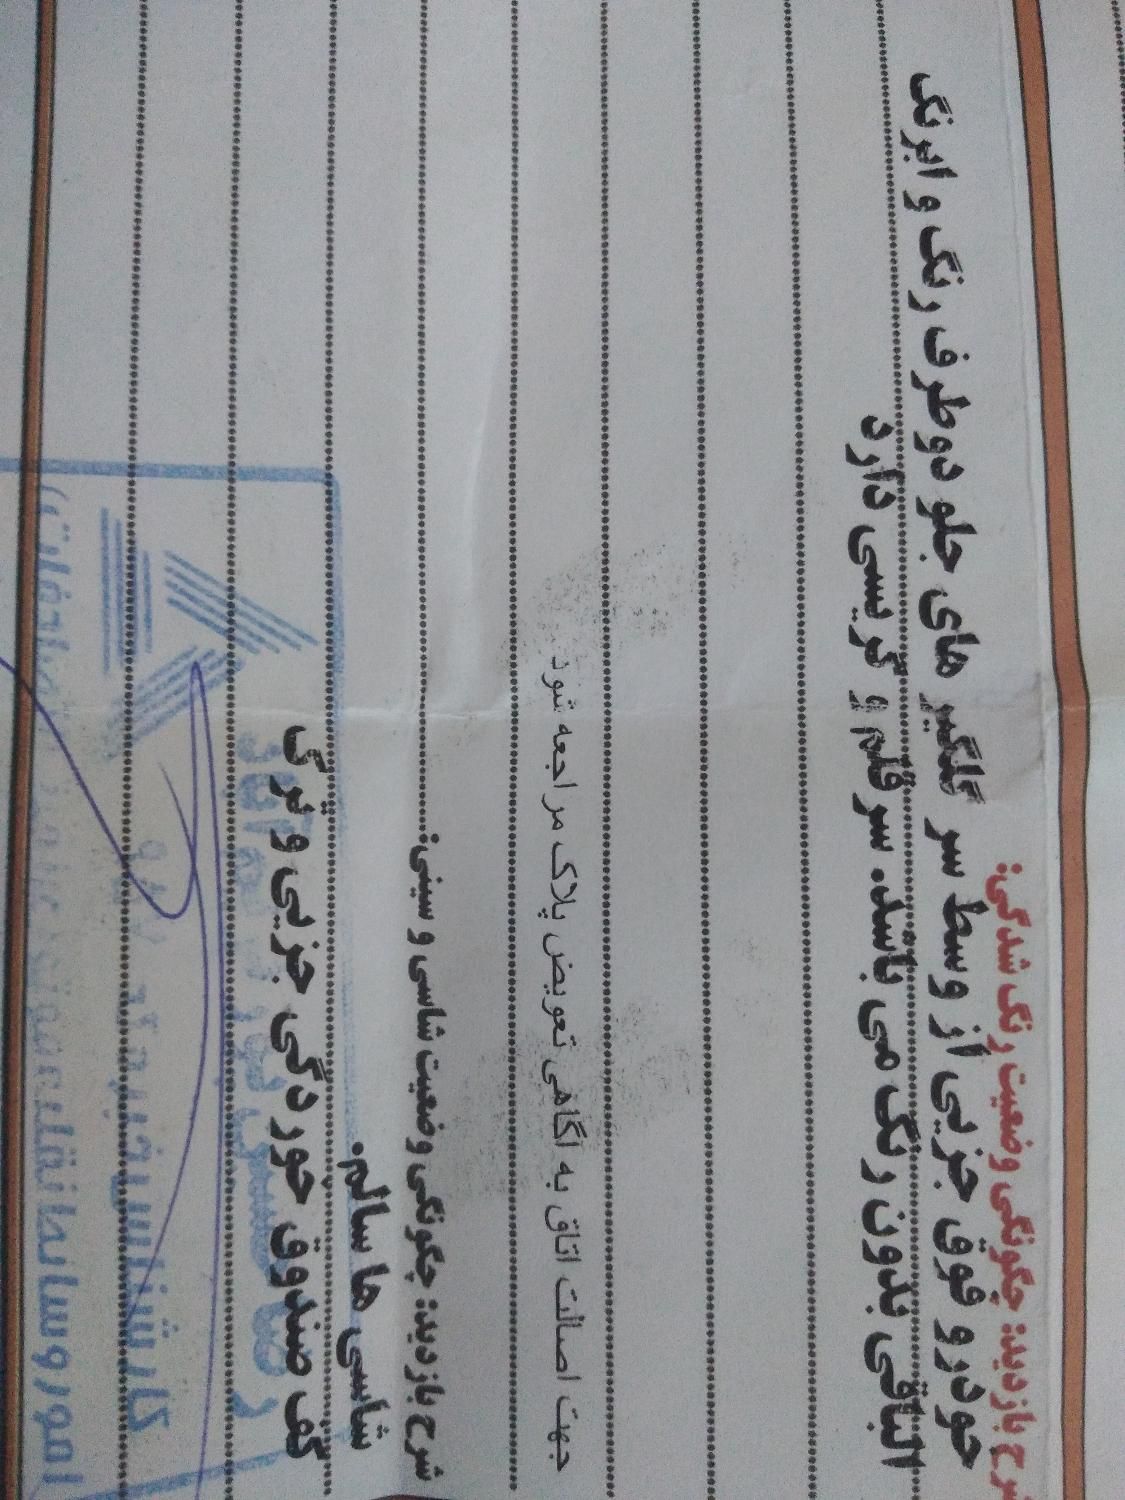 شرح بازدید: چگونگی وضعیت رنگ شدگی:
خودرو فوق جزیی از وسط سر گلگیر های جلو دوطرف رنگ و ابرنگ
الباقی بدون رنگ می باشد. سر قلم و گریسی دارد
جهت اصالت اتاق به آگاهی تعویض پلاک مراجعه شود
شرح بازدید: چگونگی وضعیت شاسی و سینی:
شاسی ها سالم.
کف صندوق خوردگی جزیی و ترک
کارشناس رسمی
امور وسائط نقلیه